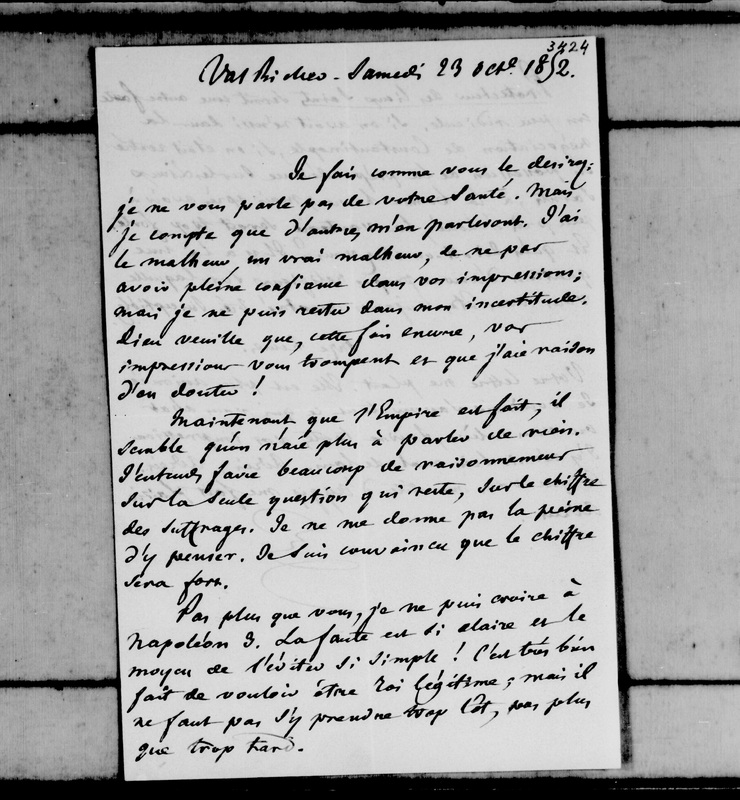 3424
Val Richer - Samedi 23 Oct. 1852.
Je fais comme vous le desirez;
je ne vous parle pas de votre santé. Mais
je compte que d'autres m'en parleront. J'ai
le malheur un vrai malheur, de ne pas
avoir pleine confiance dans vos impressions;
mais je ne puis rester dans mon incertitude.
Dieu veuille que, cette fois encore, vos
impressions vous trompent et que j'aie raison
d'en douter !
Maintenant que l'Empire est fait, il
semble qu'on n'aie plus à parler de rien.
J'entends faire beaucoup de raisonnemens
sur la seule question qui reste, sur le chiffre
des suffrages. Je ne me donne pas la peine
d'y penser. Je suis convaincu que le chiffre
sera fort.
Pas plus que vous, je ne puis croire à
Napoléon 3. La faute est si claire et le
moyen de l'éviter si simple ! C'est très bien
fait de vouloir être Roi légitime ; mais il
ne faut pas s'y prendre trop tôt, pas plus
que trop tard.